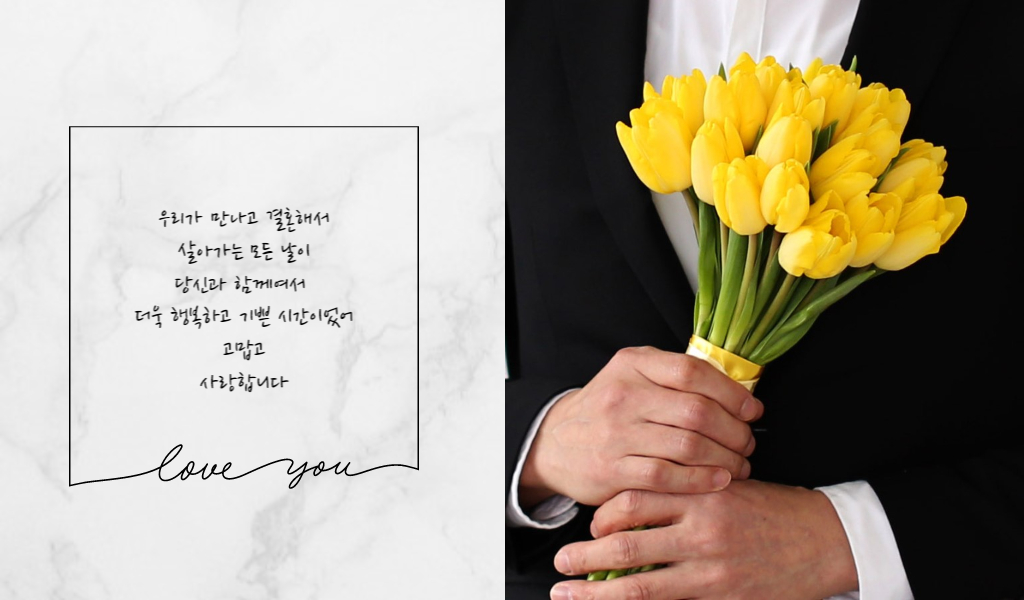 우리가 만나고 결혼해서
살아가는 모든 날이
당신과 함께여서
더욱 행복하고 기쁜 시간이었어
고맙고
사랑합니다
love you